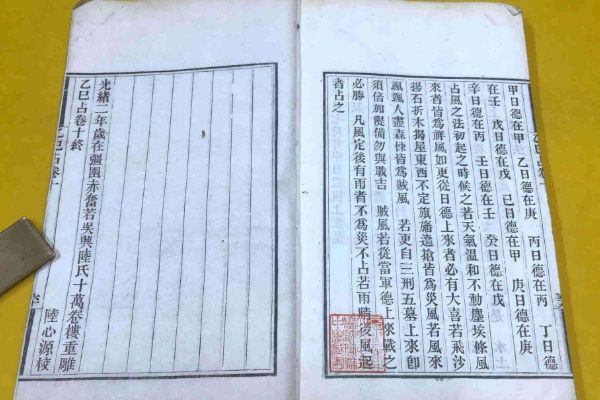 乙巳占卷十
甲日德在甲 乙日德在庚 丙日德在丙 丁日德
在壬 戊日德在戊 己日德在甲 庚日德在庚
辛日德在丙 壬日德在壬 癸日德在戊
占風之法初起之時候之若天氣溫和不動塵埃條風
來者皆為祥風如更從日德上來者必有大喜若飛沙
揚石折木揭屋東西不定旗旛遶搶皆為災風若風來
颯颯人盡森悚皆為賊風 若更自三刑五墓上來即
須倍加隄備勿與戰吉 賊風若從當軍德上來戰之
必勝 凡風定後有雨者不為災不占若雨晴後風起
者占之
光緒二年歲在彊圉赤奮若吳興陸氏十萬卷樓重雕
乙巳占卷十終 陸心源校
乙巳占卷十